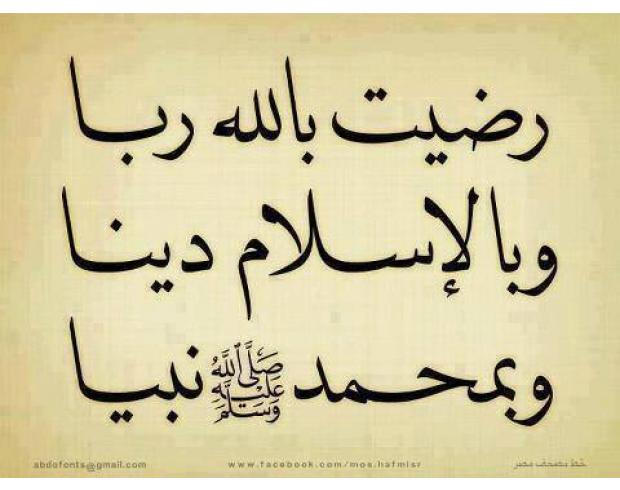 رضيت بالله ربا
وبالإسلام دينا
وبمحمد ﷺ نبيا
abdofonts@gmail.com www.facebook.com/mos.hafmisr خط مصحف مصر